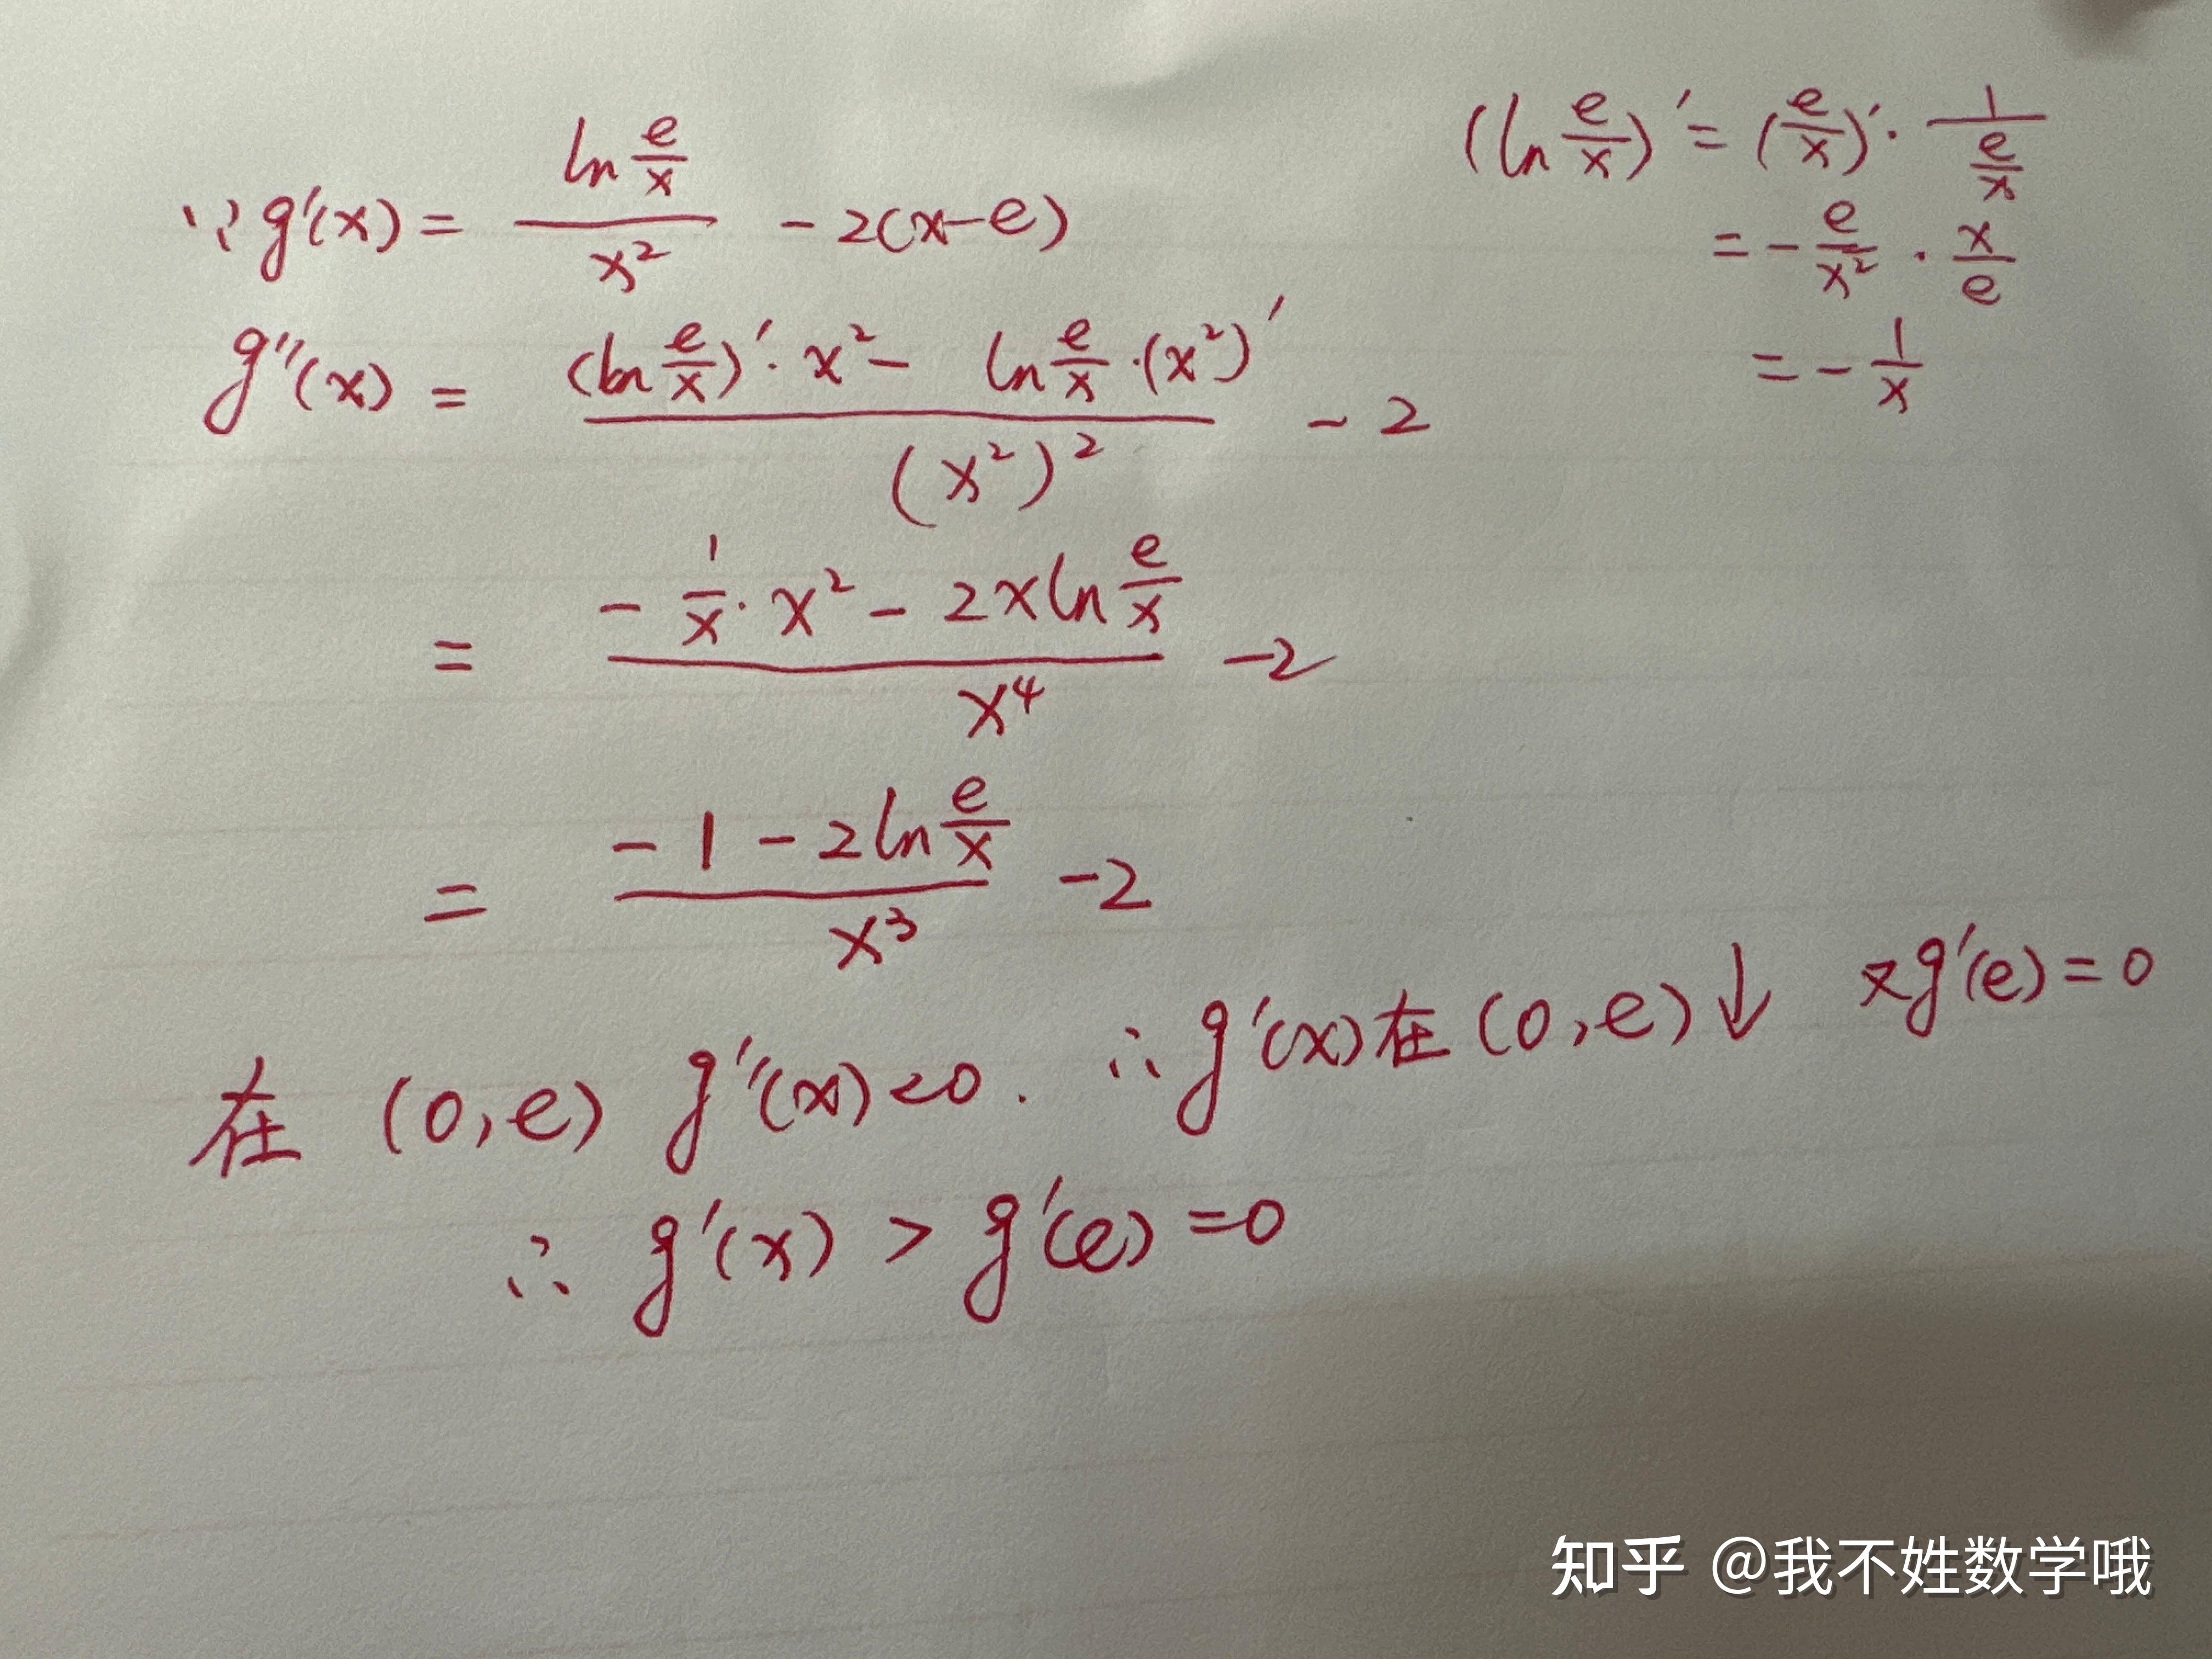 ∵ g'(x) = \frac{ln\frac{e}{x}}{x^2} - 2(x-e)
(ln\frac{e}{x})' = (\frac{e}{x})' · \frac{1}{\frac{e}{x}}
= -\frac{e}{x^2} · \frac{x}{e}
= -\frac{1}{x}
g''(x) = \frac{(ln\frac{e}{x})' · x^2 - ln\frac{e}{x} · (x^2)'}{(x^2)^2} - 2
= \frac{-\frac{1}{x} · x^2 - 2xln\frac{e}{x}}{x^4} - 2
= \frac{-1 - 2ln\frac{e}{x}}{x^3} - 2
在 (0,e) g''(x)<0. ∴ g'(x)在(0,e)↓ 又g'(e)=0
∴ g'(x) > g'(e) =0
知乎 @我不姓数学哦